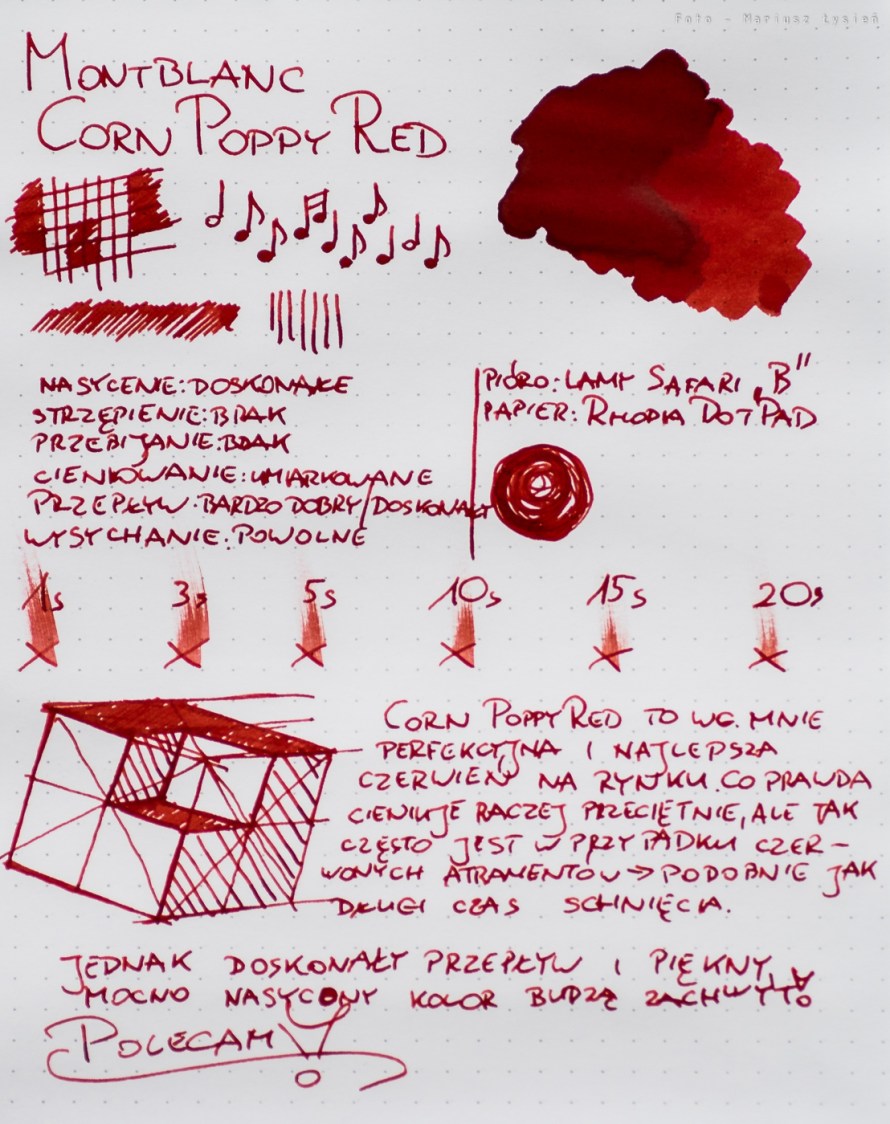 Foto - Mariusz Łysień
MONTBLANC
CORN POPPY RED
NASYCENIE: DOSKONAŁE
STRZĘPIENIE: BRAK
PRZEBIJANIE: BRAK
CIENIOWANIE: UMIARKOWANE
PRZEPŁYW: BARDZO DOBRY/DOSKONAŁY
WYSYCHANIE: POWOLNE
PIÓRO: LAMY SAFARI „B”
PAPIER: RHODIA DOTPAD
1s 3s 5s 10s 15s 20s
CORN POPPY RED TO WG. MNIE
PERFEKCYJNA I NAJLEPSZA
CZERWIEŃ NA RYNKU. CO PRAWDA
CIENIUJE RACZEJ PRZECIĘTNIE, ALE JAK
CZĘSTO JEST W PRZYPADKU CZER-
WONYCH ATRAMENTÓW → PODOBNIE JAK
DŁUGI CZAS SCHNIĘCIA.
JEDNAK DOSKONAŁY PRZEPŁYW I PIĘKNY,
MOCNO NASYCONY KOLOR BUDZĄ ZACHWYT!
POLECAM!